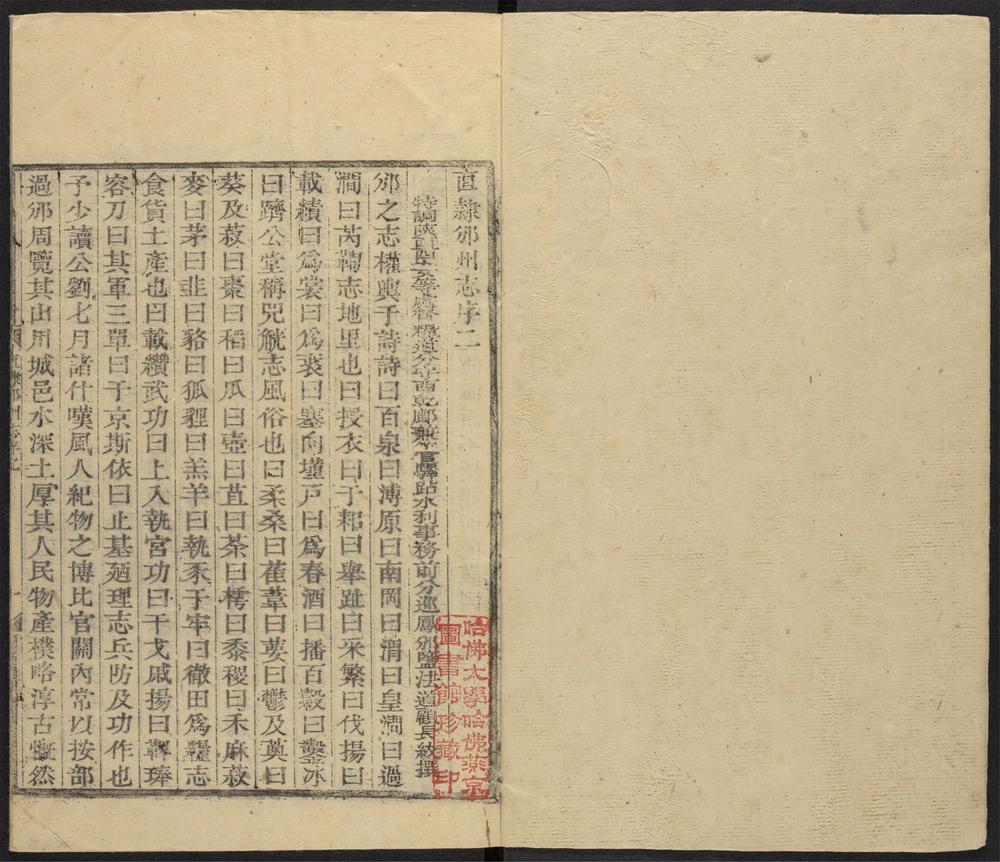 直隸邠州志序二
特調陝西等處督糧道分守西乾鄜兼管驛站水利事務前分巡鳳邠鹽法道顧長紱撰
邠之志權輿于詩詩曰百泉曰溥原曰南岡曰渭曰皇澗曰過
澗曰芮鞫志地里也曰授衣曰于耜曰舉趾曰采蘩曰伐揚曰
載績曰爲裳曰爲裘曰塞向墐戸曰爲春酒曰播百穀曰鑿冰
曰躋公堂稱兕觥志風俗也曰柔桑曰萑葦曰葽曰鬱及薁曰
葵及菽曰棗曰稻曰瓜曰壺曰苴曰荼曰樗曰黍稷曰禾麻菽
麥曰茅曰韭曰貉曰狐貍曰羔羊曰執豕于牢曰徹田爲糧志
食貨土產也曰載纘武功曰上入執宮功曰干戈戚揚曰鞞琫
容刀曰其軍三單曰于京斯依曰止基廼理志兵防及功作也
予少讀公劉七月諸什嘆風人紀物之博比官關內常以按部
過邠周覽其山川城邑水深土厚其人民物產樸略淳古慨然
直隸邠州志序二
哈佛大學哈佛燕京
圖書館珍藏印